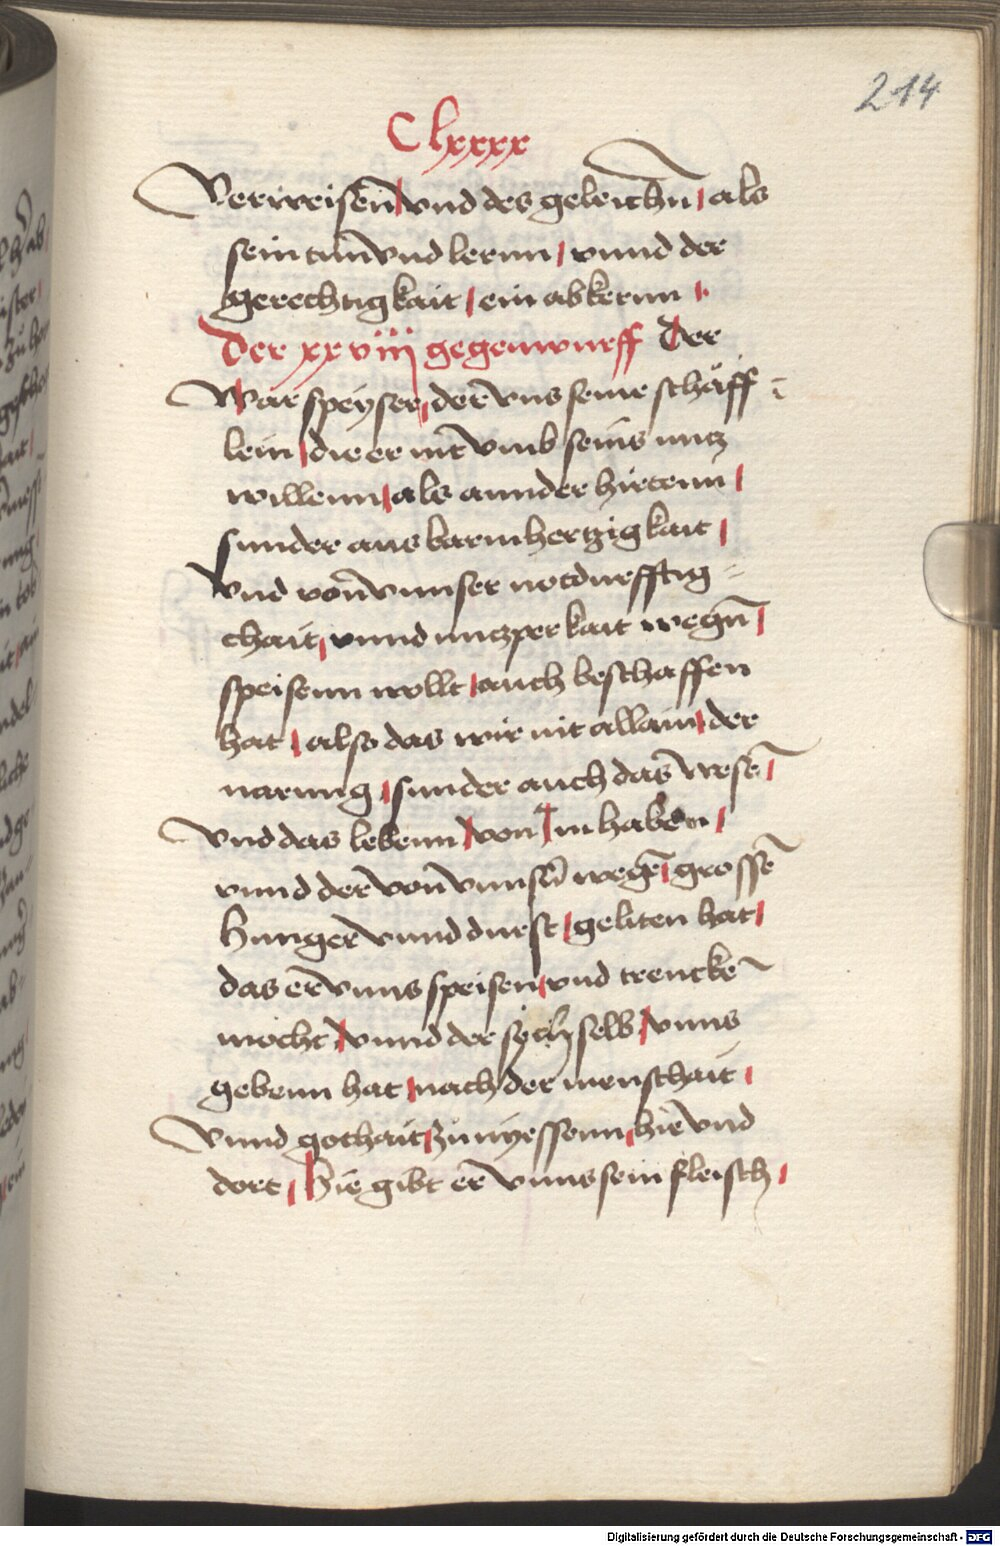 214
Clxxxx
Verweisen̄ vnd des geleichn̄ als
sein tun̄ vnd lernn / vnnd der
gerechtigkait / ein abkernn /
Der xxviij gegenwurff Der
War speyser / der vns seine schäff
lein / die er nit vmb seins nutz
willenn / als annder hirtenn /
sunder aus barmhertzigkait /
vnd von vnnser notdurfftig =
chait / vnnd nutzperkait wegn̄ /
speisenn wollt / auch beschaffen
hat / also das wir nit allain / der
narung / sunder auch das wesen̄ /
vnd das lebenn / von / im haben /
vnnd der von vnnsern̄ wegen̄ / grossen̄
Hunger vnnd durst / geliten hat /
das er vnns speisen / vnd trencken̄
mocht / vnnd der sych selb / vnns
gebenn hat / nach der menschait /
vnnd gothait / zu nyessenn / hie vnd
dort / Hie gibt er vnns sein fleisch /
Digitalisierung gefördert durch die Deutsche Forschungsgemeinschaft - DFG